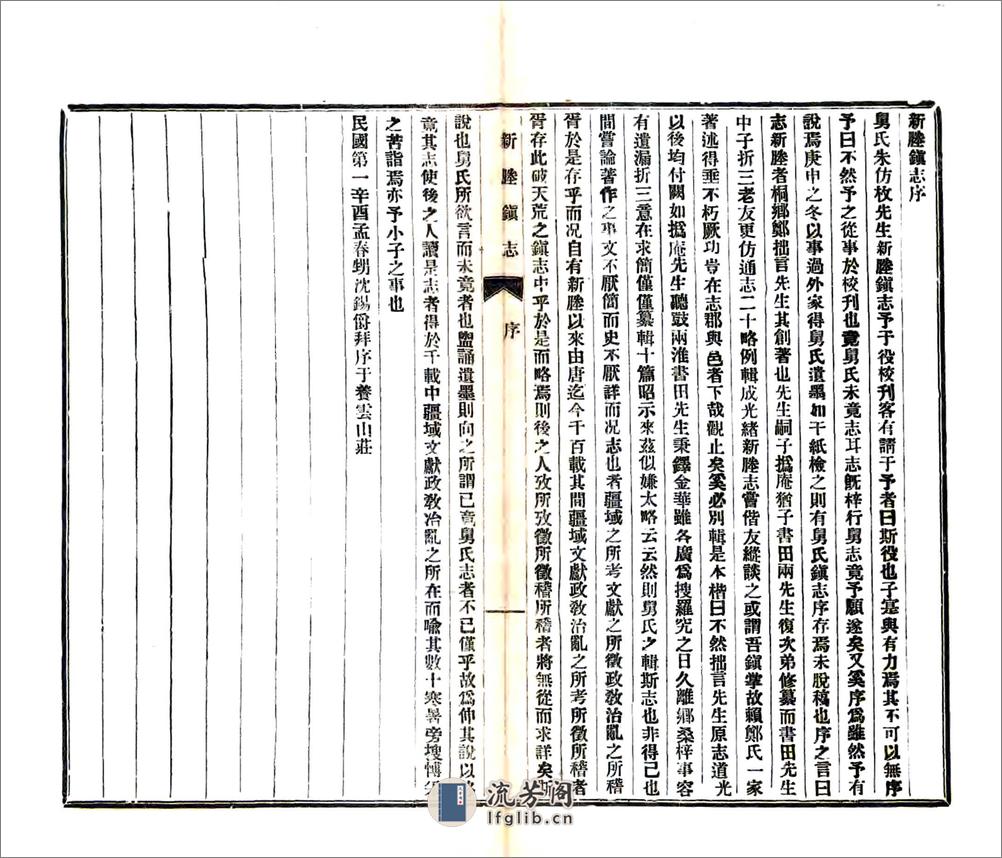 新塍鎭志序
舅氏朱仿枚先生新塍鎭志予于役校刊客有請于予者曰斯役也子寔與有力焉其不可以無序
予曰不然予之從事於校刊也竟舅氏未竟志耳志旣梓行舅志竟予願遂矣又奚序爲雖然予有
說焉庚申之冬以事過外家得舅氏遺墨如干紙檢之則有舅氏鎭志序存焉未脫稿也序之言曰
志新塍者桐鄉鄭拙言先生其創著也先生嗣子撝庵猶子書田兩先生復次弟修纂而書田先生
中子折三老友更仿通志二十略例輯成光緒新塍志嘗偕友縱談之或謂吾鎭掌故賴鄭氏一家
著述得垂不朽厥功豈在志郡與邑者下哉觀止矣奚必別輯是本楷曰不然拙言先生原志道光
以後均付闕如撝庵先生聽鼓兩淮書田先生秉鐸金華雖各廣爲搜羅究之日久離鄉桑梓事容
有遺漏折三意在求簡僅僅纂輯十篇昭示來茲似嫌太略云云然則舅氏之輯斯志也非得已也
間嘗論著作之事文不厭簡而史不厭詳而况志也者疆域之所考文獻之所徵政敎治亂之所稽
胥於是存乎而况自有新塍以來由唐迄今千百載其間疆域文獻政敎治亂之所考所徵所稽者
胥存此破天荒之鎭志中乎於是而略焉則後之人攷所攷徵所徵稽所稽者將無從而求詳矣斯
新塍鎭志 序
說也舅氏所欲言而未竟者也盥誦遺墨則向之所謂已竟舅氏志者不已僅乎故爲伸其說以
竟其志使後之人讀是志者得於千載中疆域文獻政敎治亂之所在而喩其數十寒暑旁搜慱
之苦詣焉亦予小子之事也
民國第一辛酉孟春甥沈錫爵拜序于養雲山莊
流芳阁
lfglib.cn